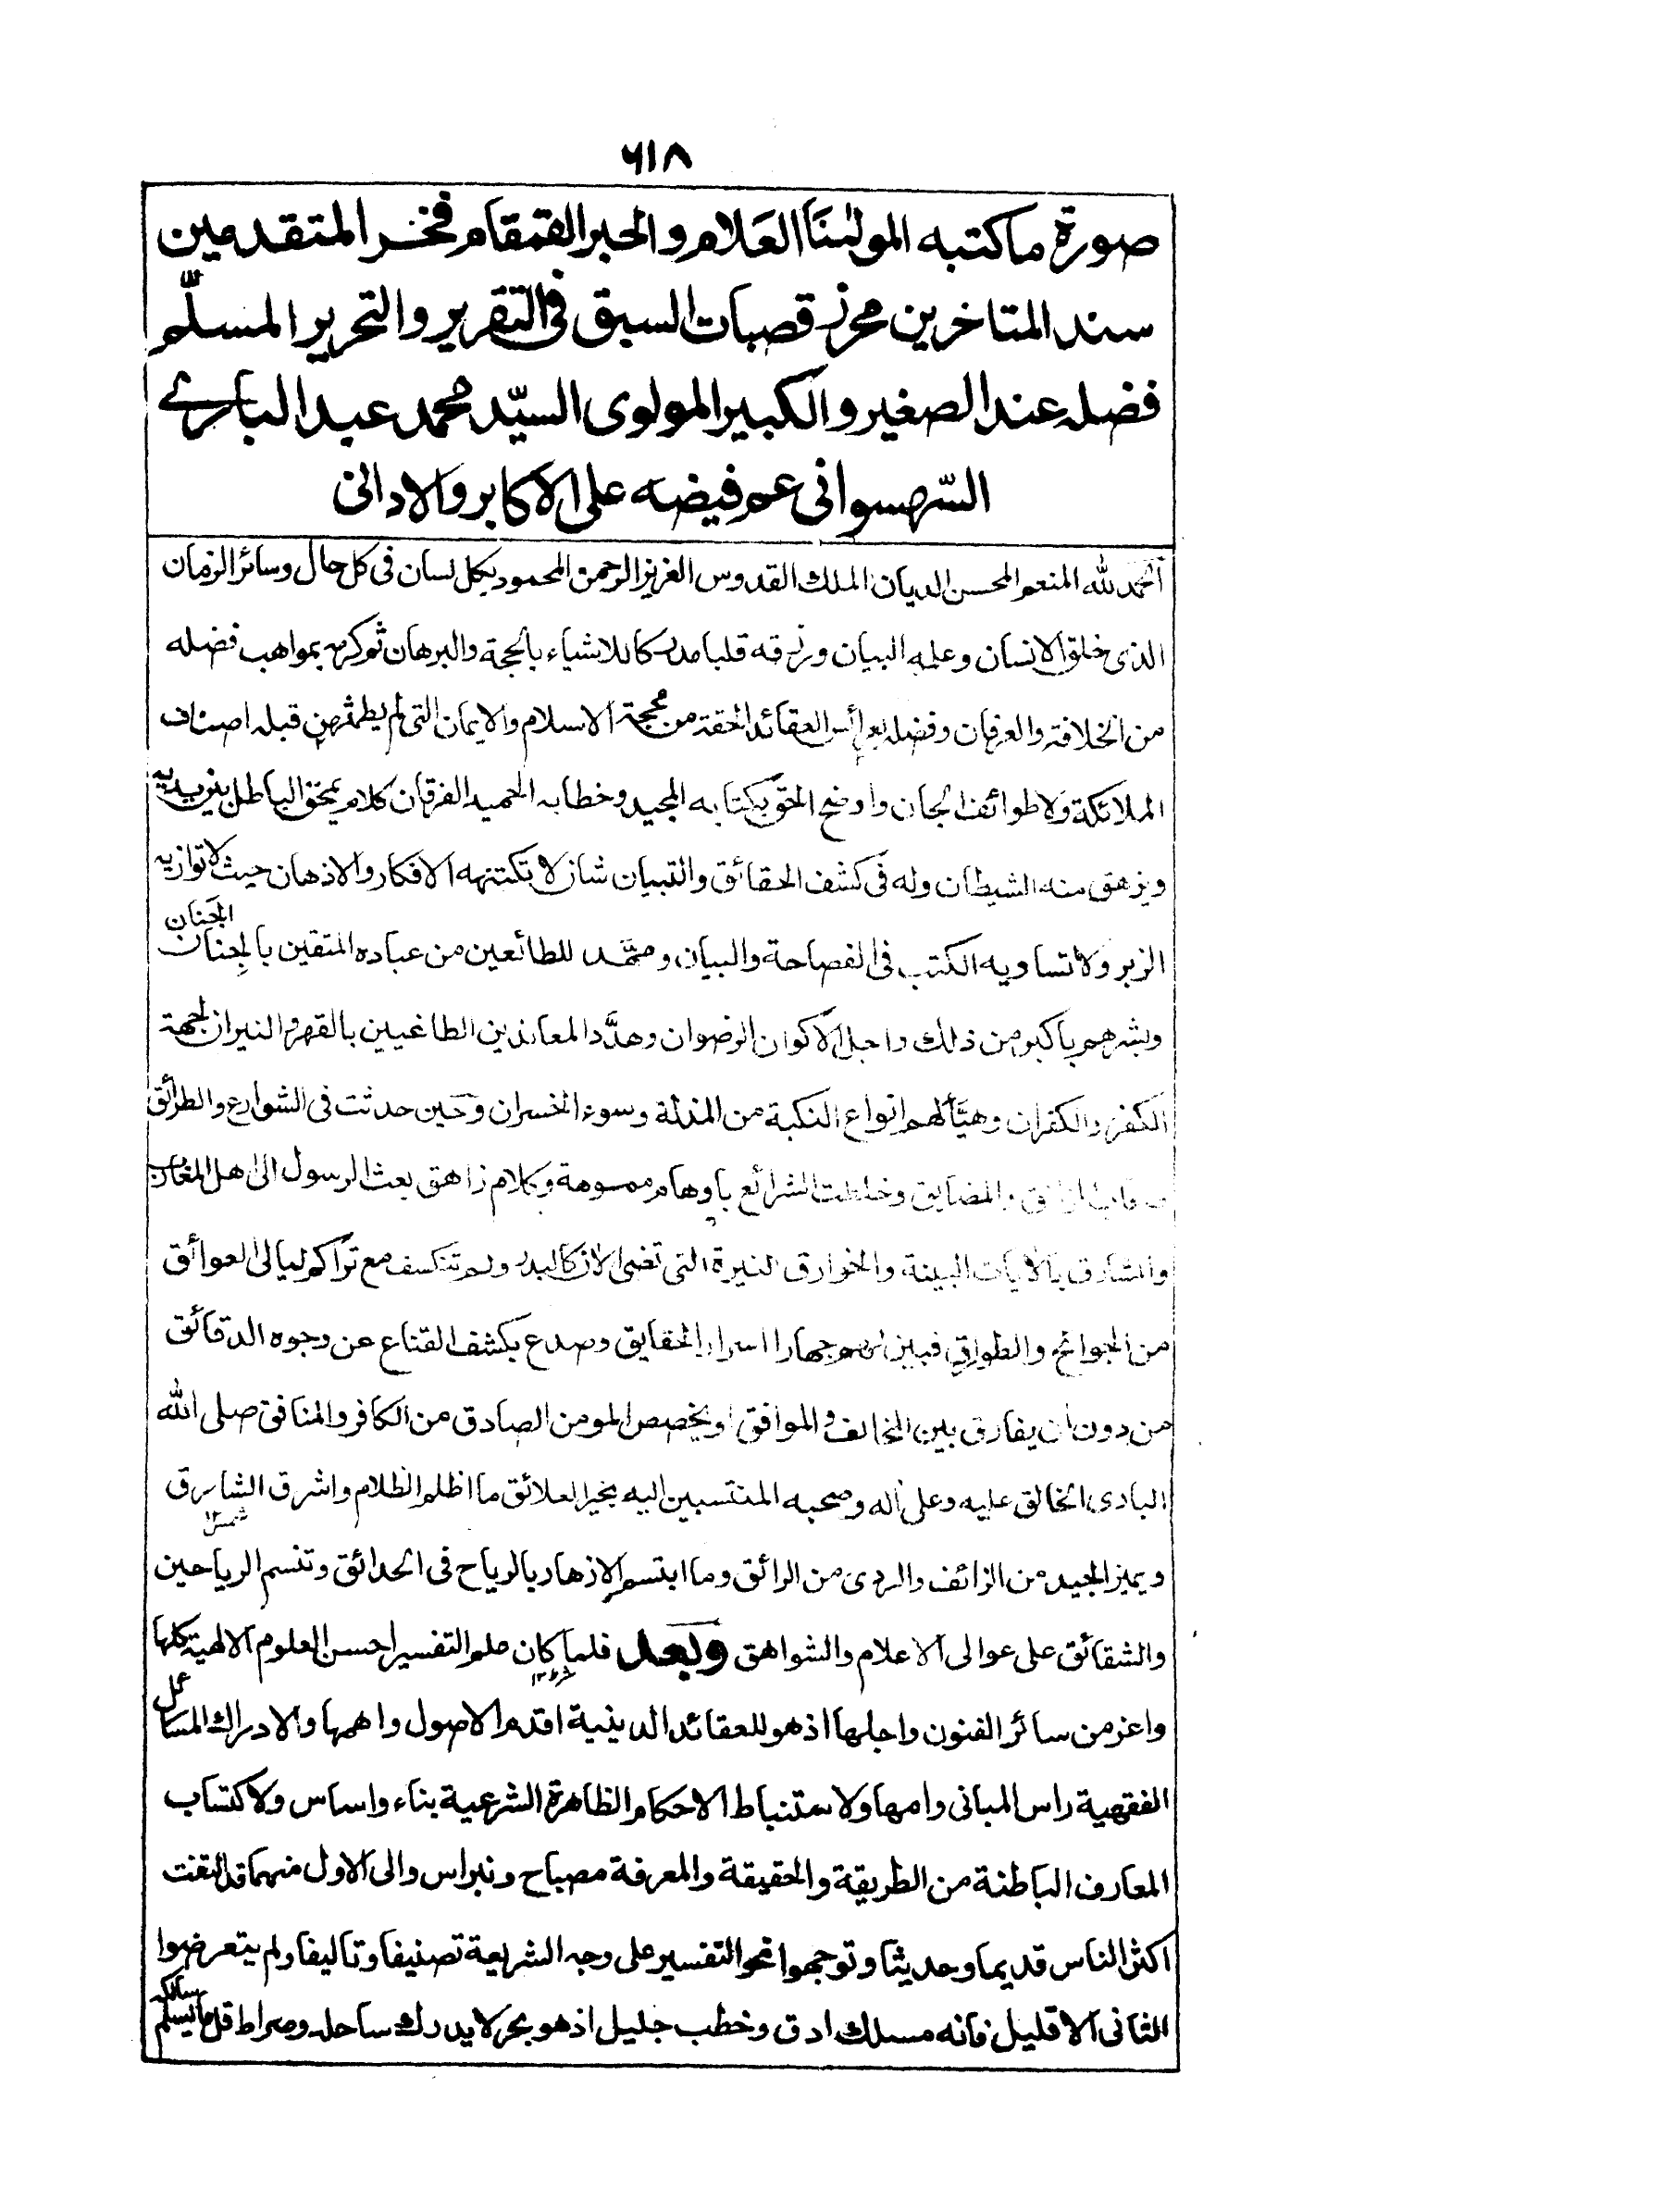 ٦١٨
صورة ماكتبه المولٰنا العلام والحبر القمقام فخر المتقدمين
سند المتاخرين محرز قصبات السبق فى التقرير والتحرير المسلّم
فضله عند الصغير والكبير المولوى السيّد محمد عبد البارے
السّهسوانى عم فيضه على الاكابر والادانى
الحمد لله المنعم المحسن الديان الملك القدوس العزيز الرحمن المحمود بكل لسان فى كل حال وسائر الزمان
الذى خلق الانسان وعلمه البيان ورزقه قلبا مدركا للاشياء بالحجة والبرهان ثم كرمه بمواهب فضله
من الخلافة والعرفان وفضله بعرائس العقائد الحقة من محجة الاسلام والايمان التى لم يطمثهن قبله اصناف
الملائكة ولا طوائف الجان واوضح الحق بكتابه المجيد وخطابه الحميد الفرقان كلام يمحق الباطل بين يديه
ويزهق منه الشيطان وله فى كشف الحقائق والتبيان شان لا تكتنهه الافكار والاذهان حيث لا توازيه
الزبر ولا تساويه الكتب فى الفصاحة والبيان ومهّد للطائعين من عباده المتقين بالجنان الجَنان
وبشرهم باكبر من ذلك واجل الاكوان الرضوان وهدّد المعاندين الطاغيين بالقهر والنيران لجهة
الكفر والكفران وهيّأ لهم انواع النكبة من المذلة وسوء الخسران وحين حدثت فى الشوارع والطرائق
والمضايق وخلطت الشرائع باوهام مموهة وكلام زاهق بعث الرسول الى اهل المغارب
والمشارق بالايات البينة والخوارق النيرة التى تضئ الان كالبدر ولم تنكسف مع تراكم ليالى العوائق
من الجوائح والطوارق فبين لهم جهارا اسرار الحقايق وصدع بكشف القناع عن وجوه الدقائق
من دون ان يفارق بين المخالف والموافق او يخصص المومن الصادق من الكافر والمنافق صلى الله
البادى الخالق عليه وعلى اله وصحبه المنتسبين اليه بخير العلائق ما اظلم الظلام واشرق الشارق
ويميز الجيد من الزائف والردى من الرائق وما ابتسم الازهار بالرياح فى الحدائق وتنسم الرياحين
والشقائق على عوالى الاعلام والشواهق وبعد فلما كان علم التفسير احسن العلوم الالهية كلها
واعز من سائر الفنون واجلها اذ هو للعقائد الدينية اقدم الاصول واهمها والادراك المسائل
الفقهية راس المبانى وامها ولاستنباط الاحكام الظاهرة الشرعية بناء واساس ولاكتساب
المعارف الباطنة من الطريقة والحقيقة والمعرفة مصباح ونبراس والى الاول منهما قد التفت
اكثر الناس قديما وحديثا وتوجهوا نحو التفسير على وجه الشريعة تصنيفا وتاليفا ولم يتعرضوا
الثانى الا قليل فانه مسلك ادق وخطب جليل اذ هو بحر لا يدرك ساحله وصراط قل ما يسلم سالكه